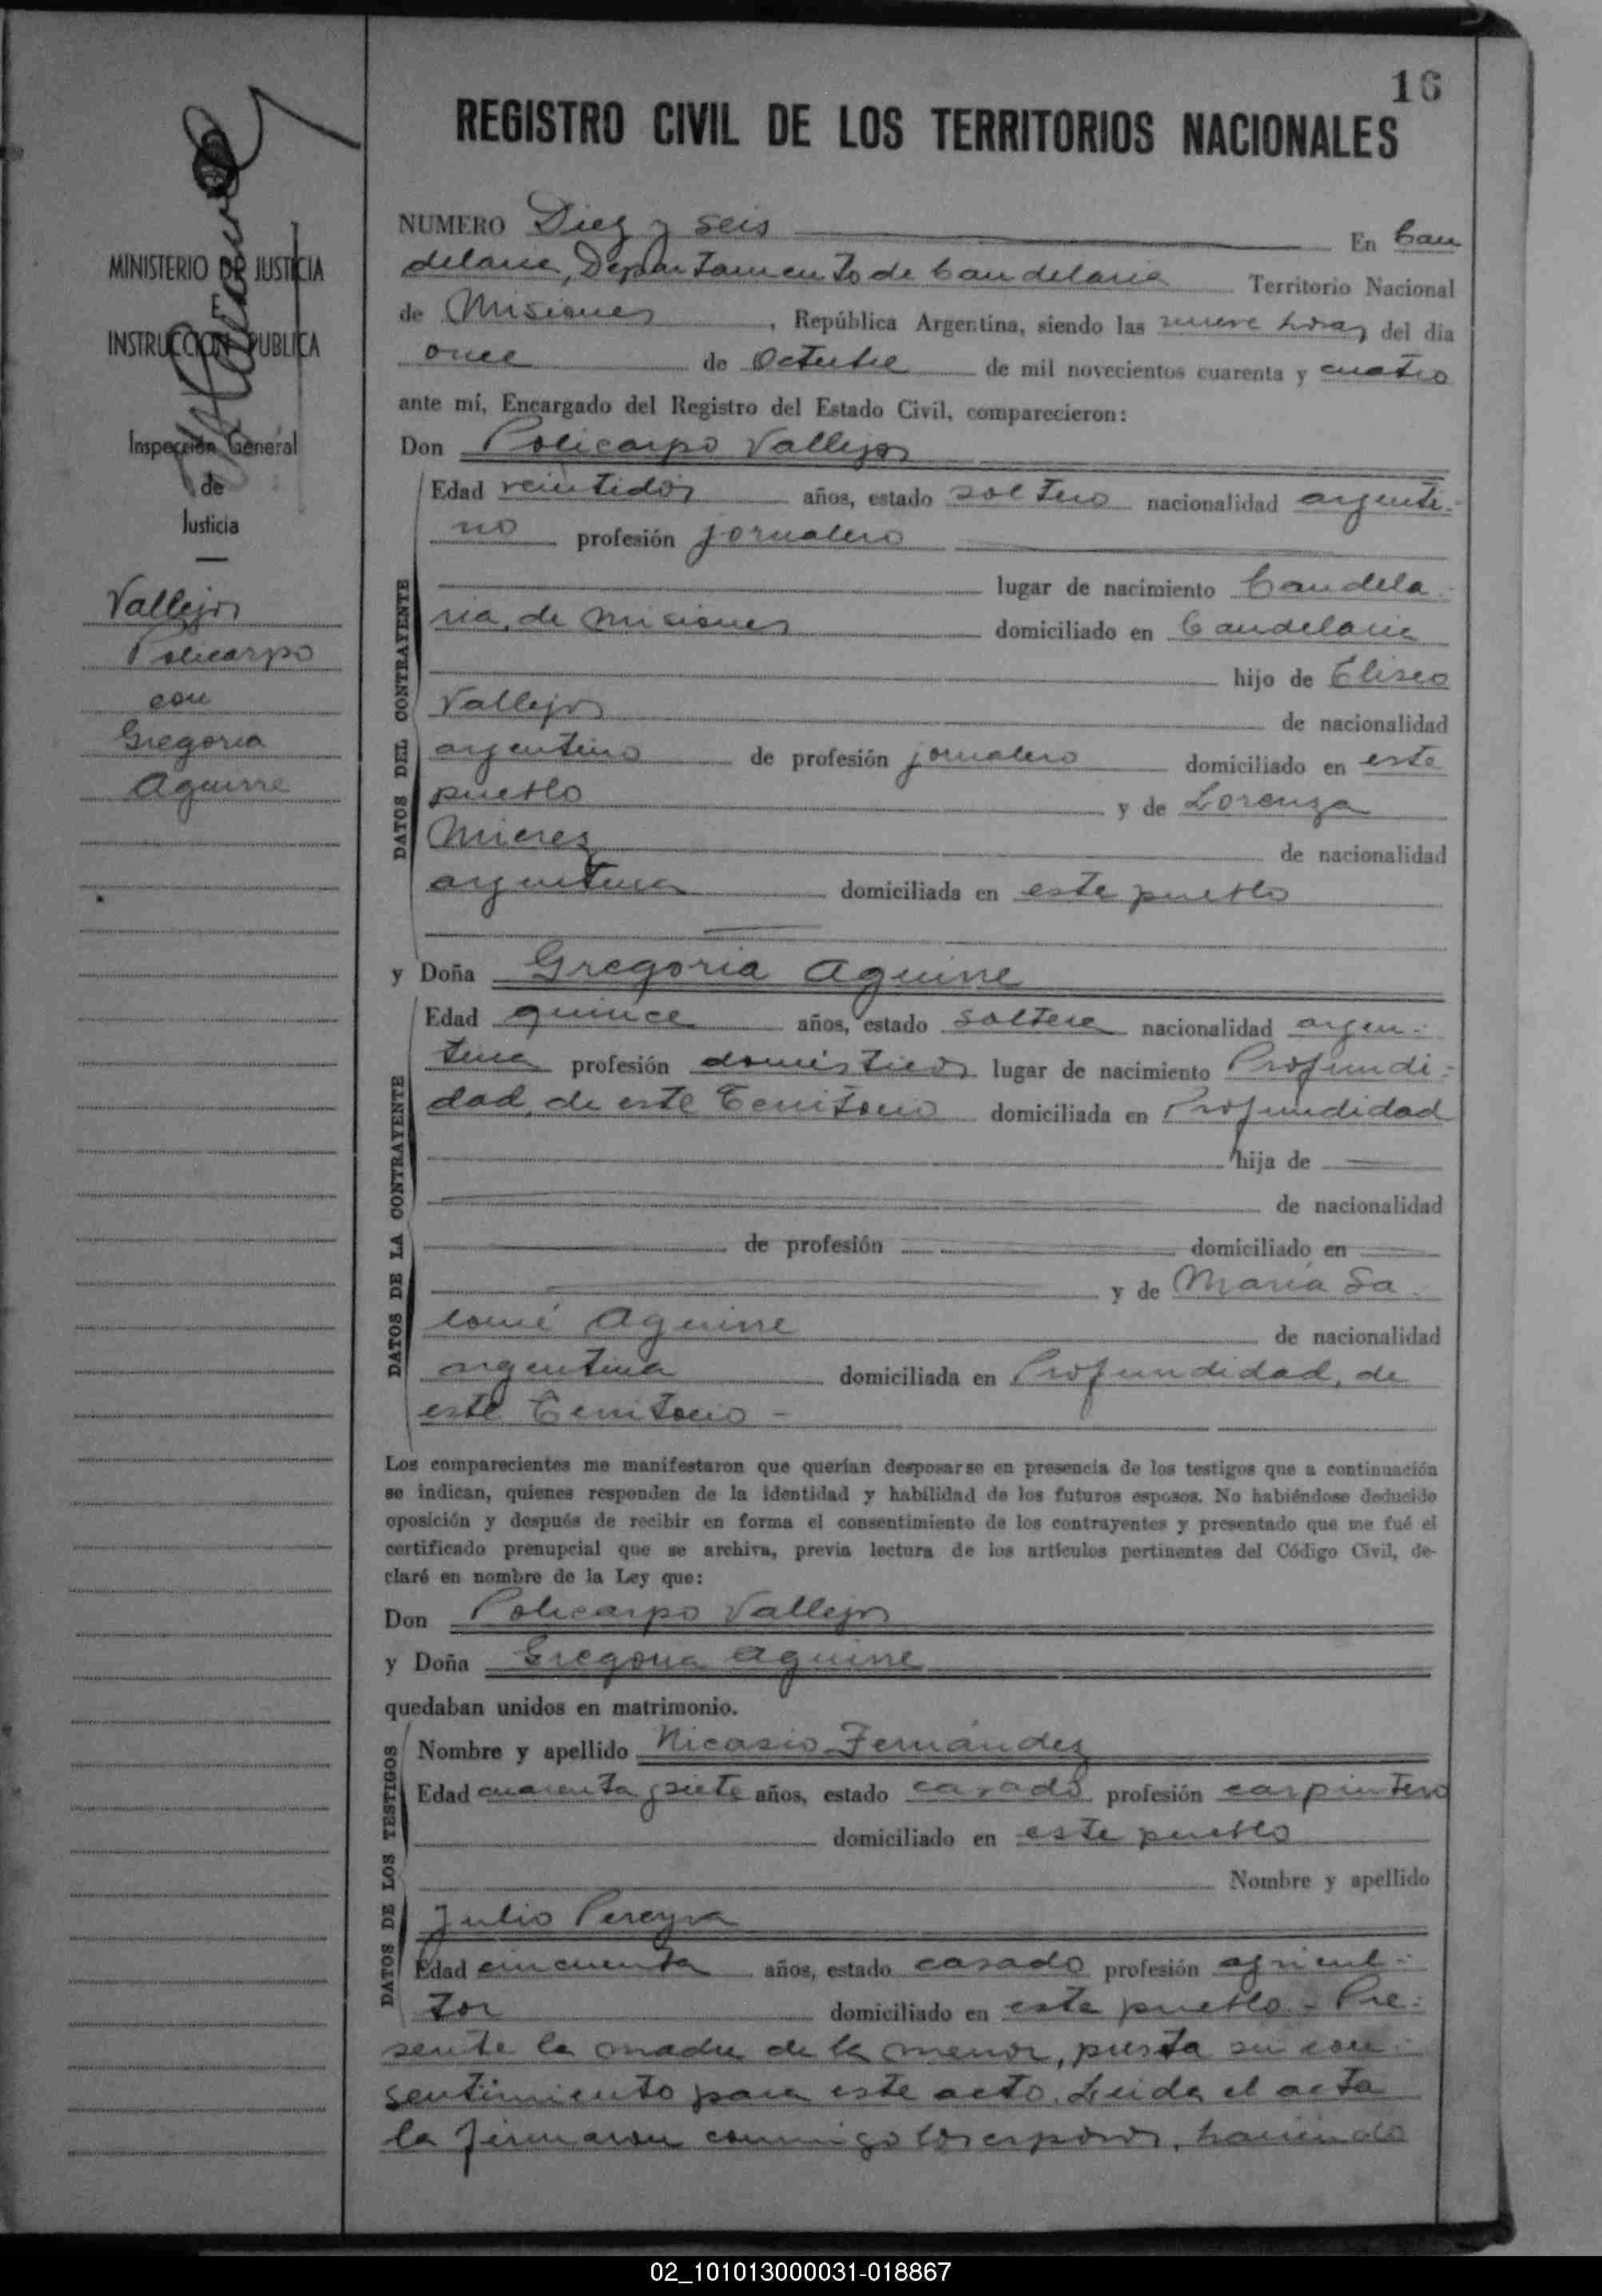 16
REGISTRO CIVIL DE LOS TERRITORIOS NACIONALES
MINISTERIO DE JUSTICIA
E
INSTRUCCION PUBLICA
Inspección General
de
Justicia
Vallejos
Policarpo
con
Gregoria
Aguirre
NUMERO Diez y seis En Can
delaria, Departamento de Candelaria Territorio Nacional
de Misiones, República Argentina, siendo las nueve horas del dia
once de Octubre de mil novecientos cuarenta y cuatro
ante mí, Encargado del Registro del Estado Civil, comparecieron:
Don Policarpo Vallejos
DATOS DEL CONTRAYENTE
Edad veintidós años, estado soltero nacionalidad argenti-
no profesión jornalero
lugar de nacimiento Candela
ria, de Misiones domiciliado en Candelaria
hijo de Eliseo
Vallejos de nacionalidad
argentino de profesión jornalero domiciliado en este
pueblo y de Lorenza
Mieres de nacionalidad
argentina domiciliada en este pueblo
y Doña Gregoria Aguirre
DATOS DE LA CONTRAYENTE
Edad quince años, estado soltera nacionalidad argen-
tina profesión domésticos lugar de nacimiento Profundi-
dad, de este Territorio domiciliada en Profundidad
hija de
de nacionalidad
de profesión domiciliado en
y de María Sa
lomé Aguirre de nacionalidad
argentina domiciliada en Profundidad, de
este Territorio -
Los comparecientes me manifestaron que querían desposarse en presencia de los testigos que a continuación
se indican, quienes responden de la identidad y habilidad de los futuros esposos. No habiéndose deducido
oposición y después de recibir en forma el consentimiento de los contrayentes y presentado que me fué el
certificado prenupcial que se archiva, previa lectura de los artículos pertinentes del Código Civil, de-
claré en nombre de la Ley que:
Don Policarpo Vallejos
y Doña Gregoria Aguirre
quedaban unidos en matrimonio.
DATOS DE LOS TESTIGOS
Nombre y apellido Nicasio Fernández
Edad cuarenta y siete años, estado casado profesión carpintero
domiciliado en este pueblo
Nombre y apellido
Julio Pereyra
Edad cincuenta años, estado casado profesión agricul-
tor domiciliado en este pueblo - Pre-
sente la madre de la menor, presta su con-
sentimiento para este acto. Leida el acta
la firmaron conmigo los esposos, haciendo
02_101013000031-018867